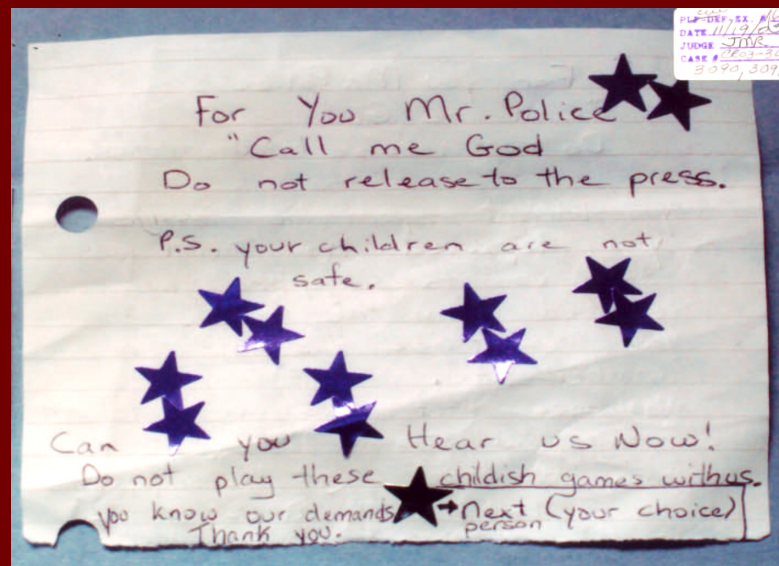 PLF DEF. EX. #
DATE 11/19/03
JUDGE JMR
CASE #
3090, 309
For You Mr. Police
"Call me God
Do not release to the press.
P.S. your children are not
safe.
Can you Hear us Now!
Do not play these childish games with us.
You know our demands → Next person (your choice)
Thank you.